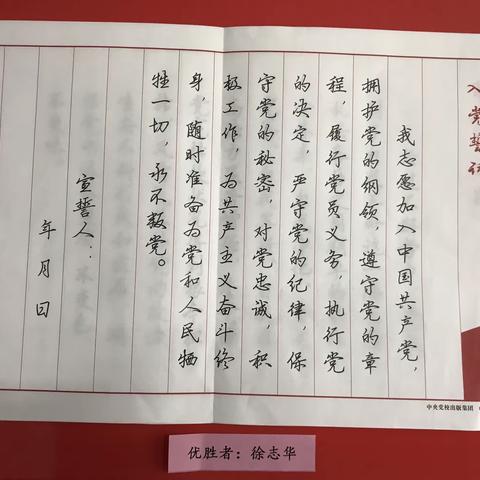 入党誓词
我志愿加入中国共产党，
拥护党的纲领，遵守党的章
程，履行党员义务，执行党
的决定，严守党的纪律，保
守党的秘密，对党忠诚，积
极工作，为共产主义奋斗终
身，随时准备为党和人民牺
牲一切，永不叛党。
宣誓人：
年月日
中央党校出版集团
优胜者：徐志华